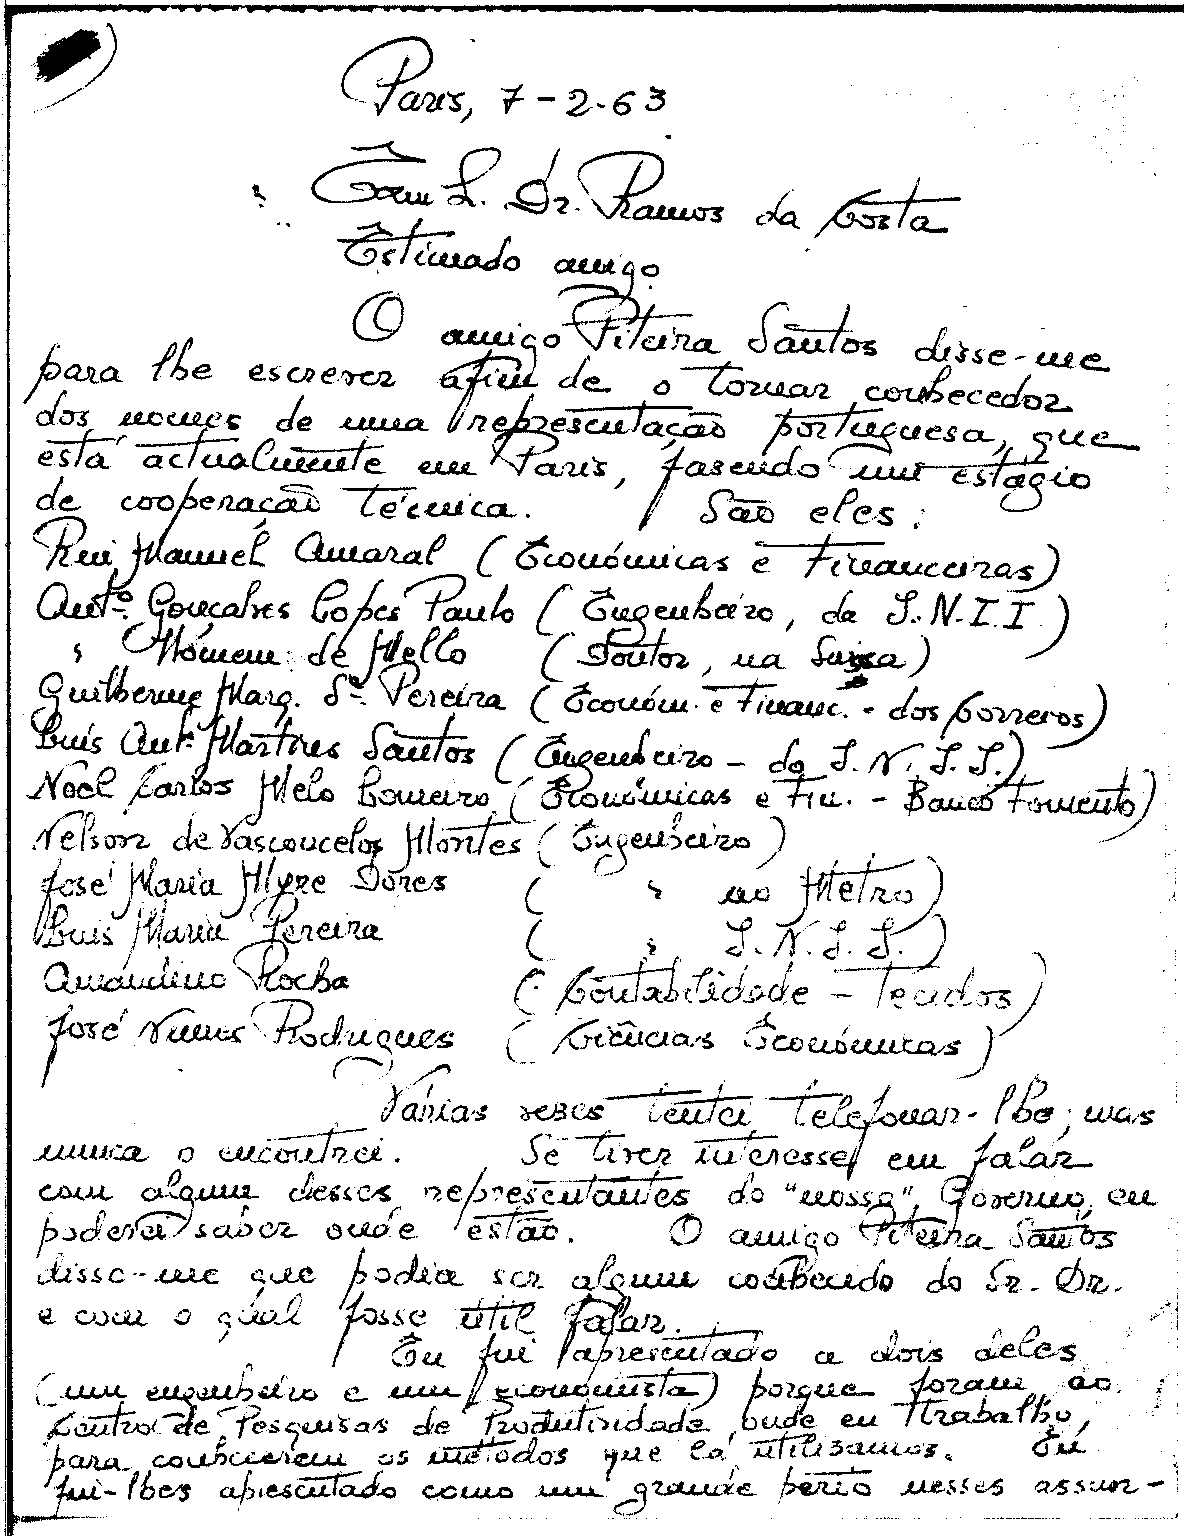 Paris, 7-2-63
Exm S. Dr. Ramos da Costa
Estimado amigo
O amigo Piteira Santos disse-me
para lhe escrever afim de o tornar conhecedor
dos nomes de uma representação portuguesa, que
está actualmente em Paris, fasendo um estágio
de cooperação técnica. São eles:
Rui Manuel Amaral (Económicas e Financeiras)
Antº. Gonçalves Lopes Paulo (Engenheiro, da I.N.I.I.)
" Homem de Mello (Doutor, na )
Guilherme Marq. Sª. Pereira (Económ. e Financ. - dos Correros)
Luis Antº Martires Santos (Engenheiro - do I.N.I.I.)
Noel Carlos Melo Loureiro (Económicas e Fin. - Banco Fomento)
Nelson de Vasconcelos Montes (Engenheiro)
José Maria Dores ( " no Metro)
Luis Maria Pereira ( " I.N.I.I.)
Amandino Rocha (Contabilidade - Tecidos)
José Nunes Rodrigues (Ciências Económicas)
Várias veses tentei telefonar-lhe, mas
nunca o encontrei. Se tiver interesse em falar
com algum desses representantes do "nosso" Governo, eu
poderei saber onde estão. O amigo Piteira Santos
disse-me que podia ser algum conhecido do Sr. Dr.
e com o qual fosse útil falar.
Eu fui apresentado a dois deles
(um engenheiro e um economista) porque foram ao
Centro de Pesquisas de Produtividade, onde eu trabalho,
para conhecerem os métodos que lá utilisamos. Eu
fui-lhes apresentado como um grande perito nesses assun-